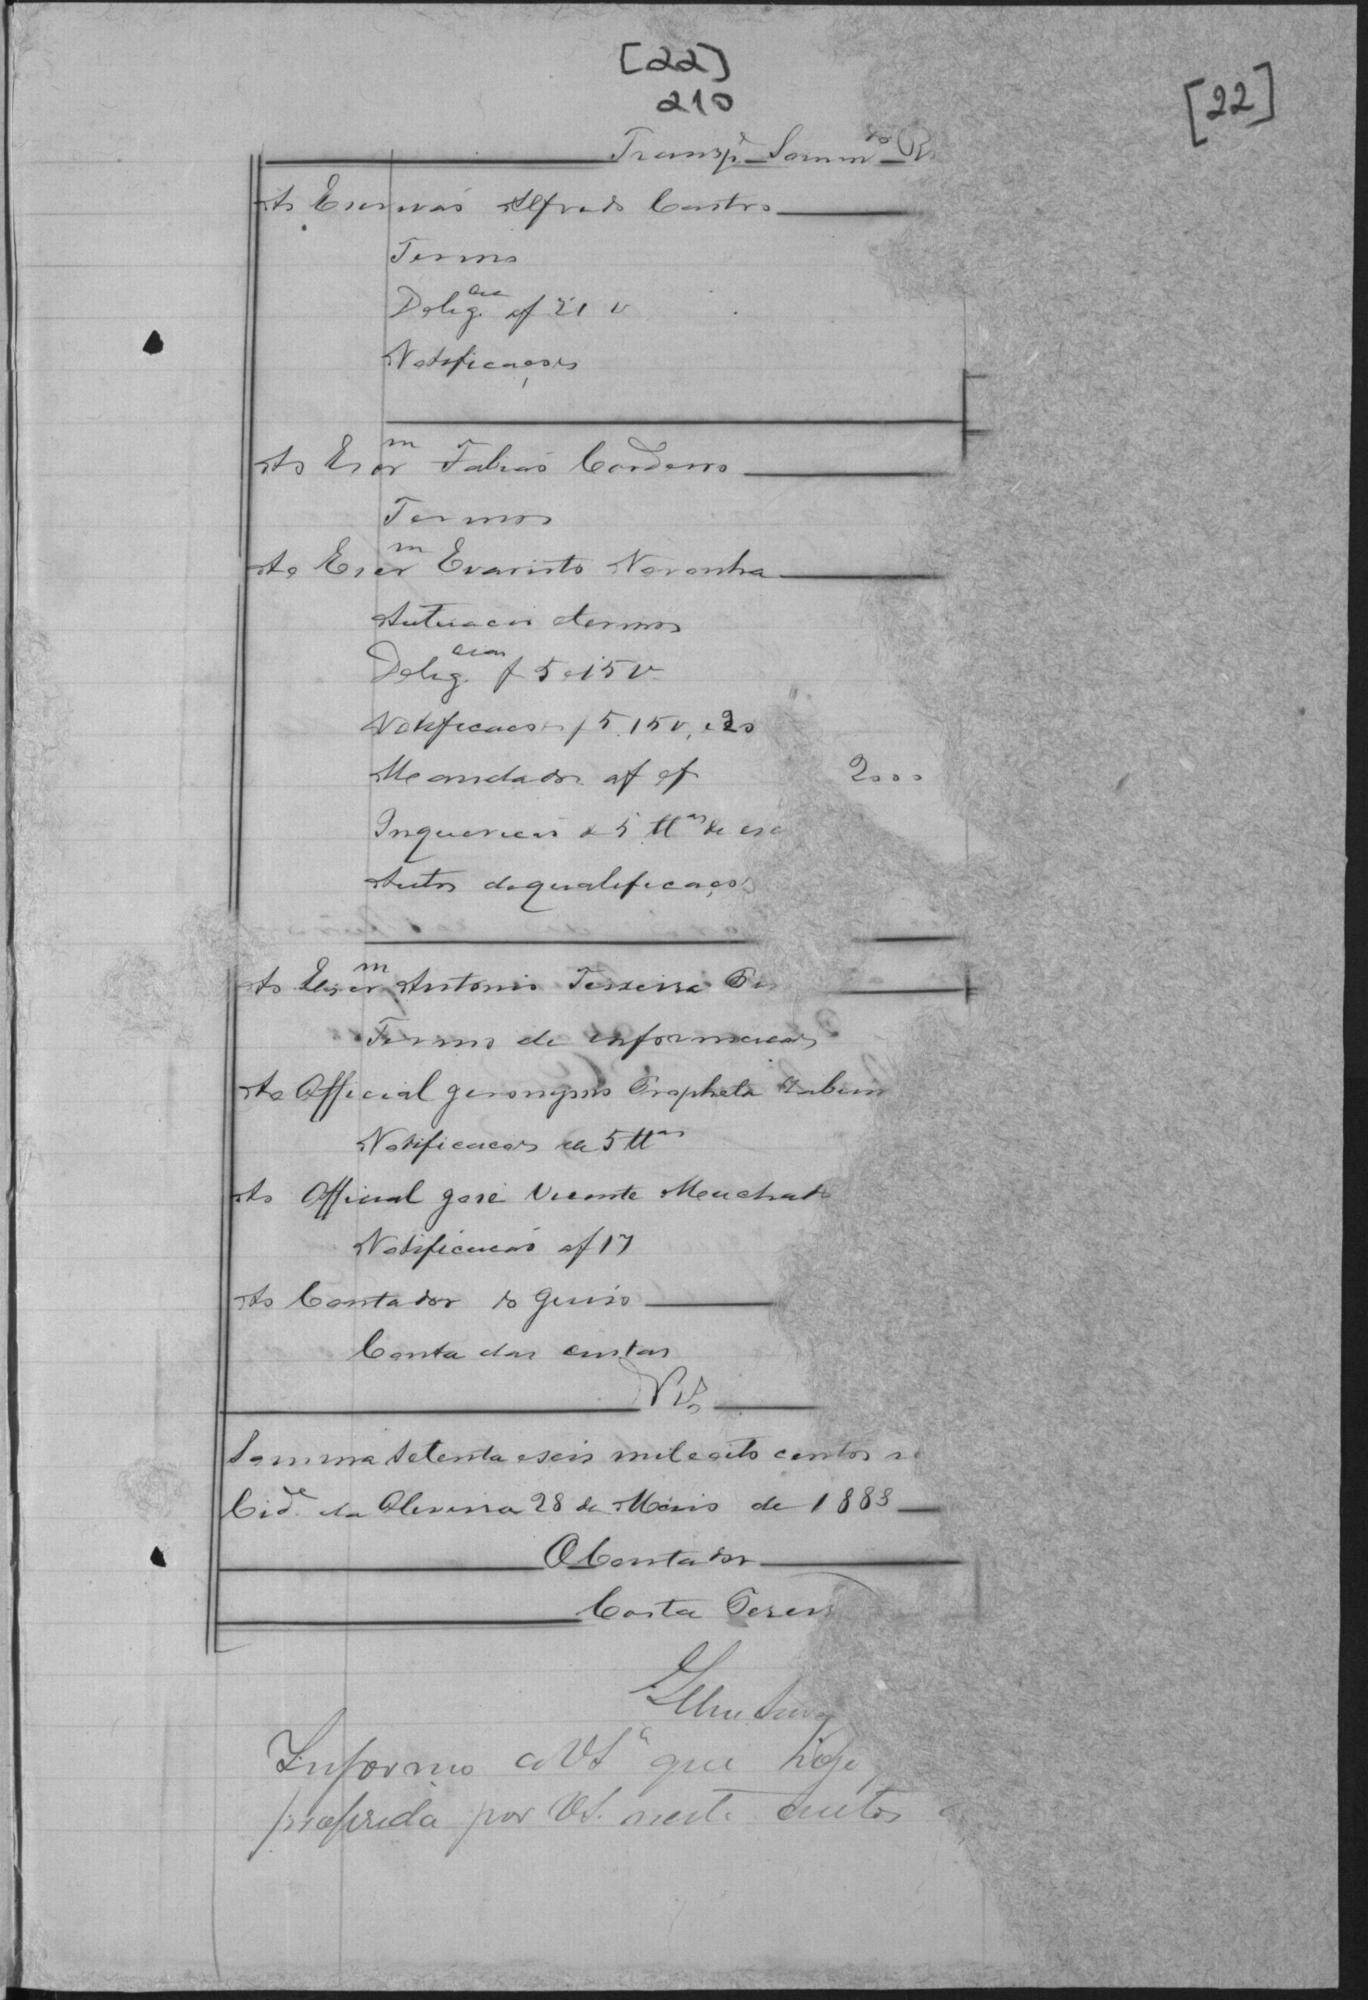 [22]
210
[22]
Transp.e Somm.do R
Ao Escrivão Alfredo Castro
Termo
Delig.cia af 21 v
Notificações
Ao Escr.m Fabião Cordeiro
Termos
Ao Escr.m Evaristo Noronha
Autuacão etermos
Delig.cias f 5 e 15 v
Notificacões f 5, 15 v, e 20
Mandados af ef 2000
Inquericão de 5 ttas de
Autos dequalificaçõ
Ao Escr.m Antonio Teixeira Pe
Termo de informacão
Ao Official Jeronymo Propheta
Notificacões a 5 ttas
Ao Official José Vicente Machado
Notificacão af 17
Ao Contador do Juiso
Conta das custas
Rs
Somma Setenta eseis mil eoito centos r
Cid.e da Oliveira 28 de Maio de 1888
O Contador
Costa Pereir
Informo a VSa que hoje
proferida por VS. neste autos